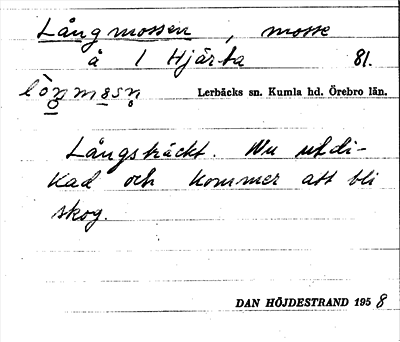 Långmossen, mosse
å 1 Hjärta 81.
lòŋmɔsn̥ Lerbäcks sn. Kumla hd. Örebro län.
Långsträckt. Nu utdi-
kad och kommer att bli
skog.
DAN HÖJDESTRAND 1958